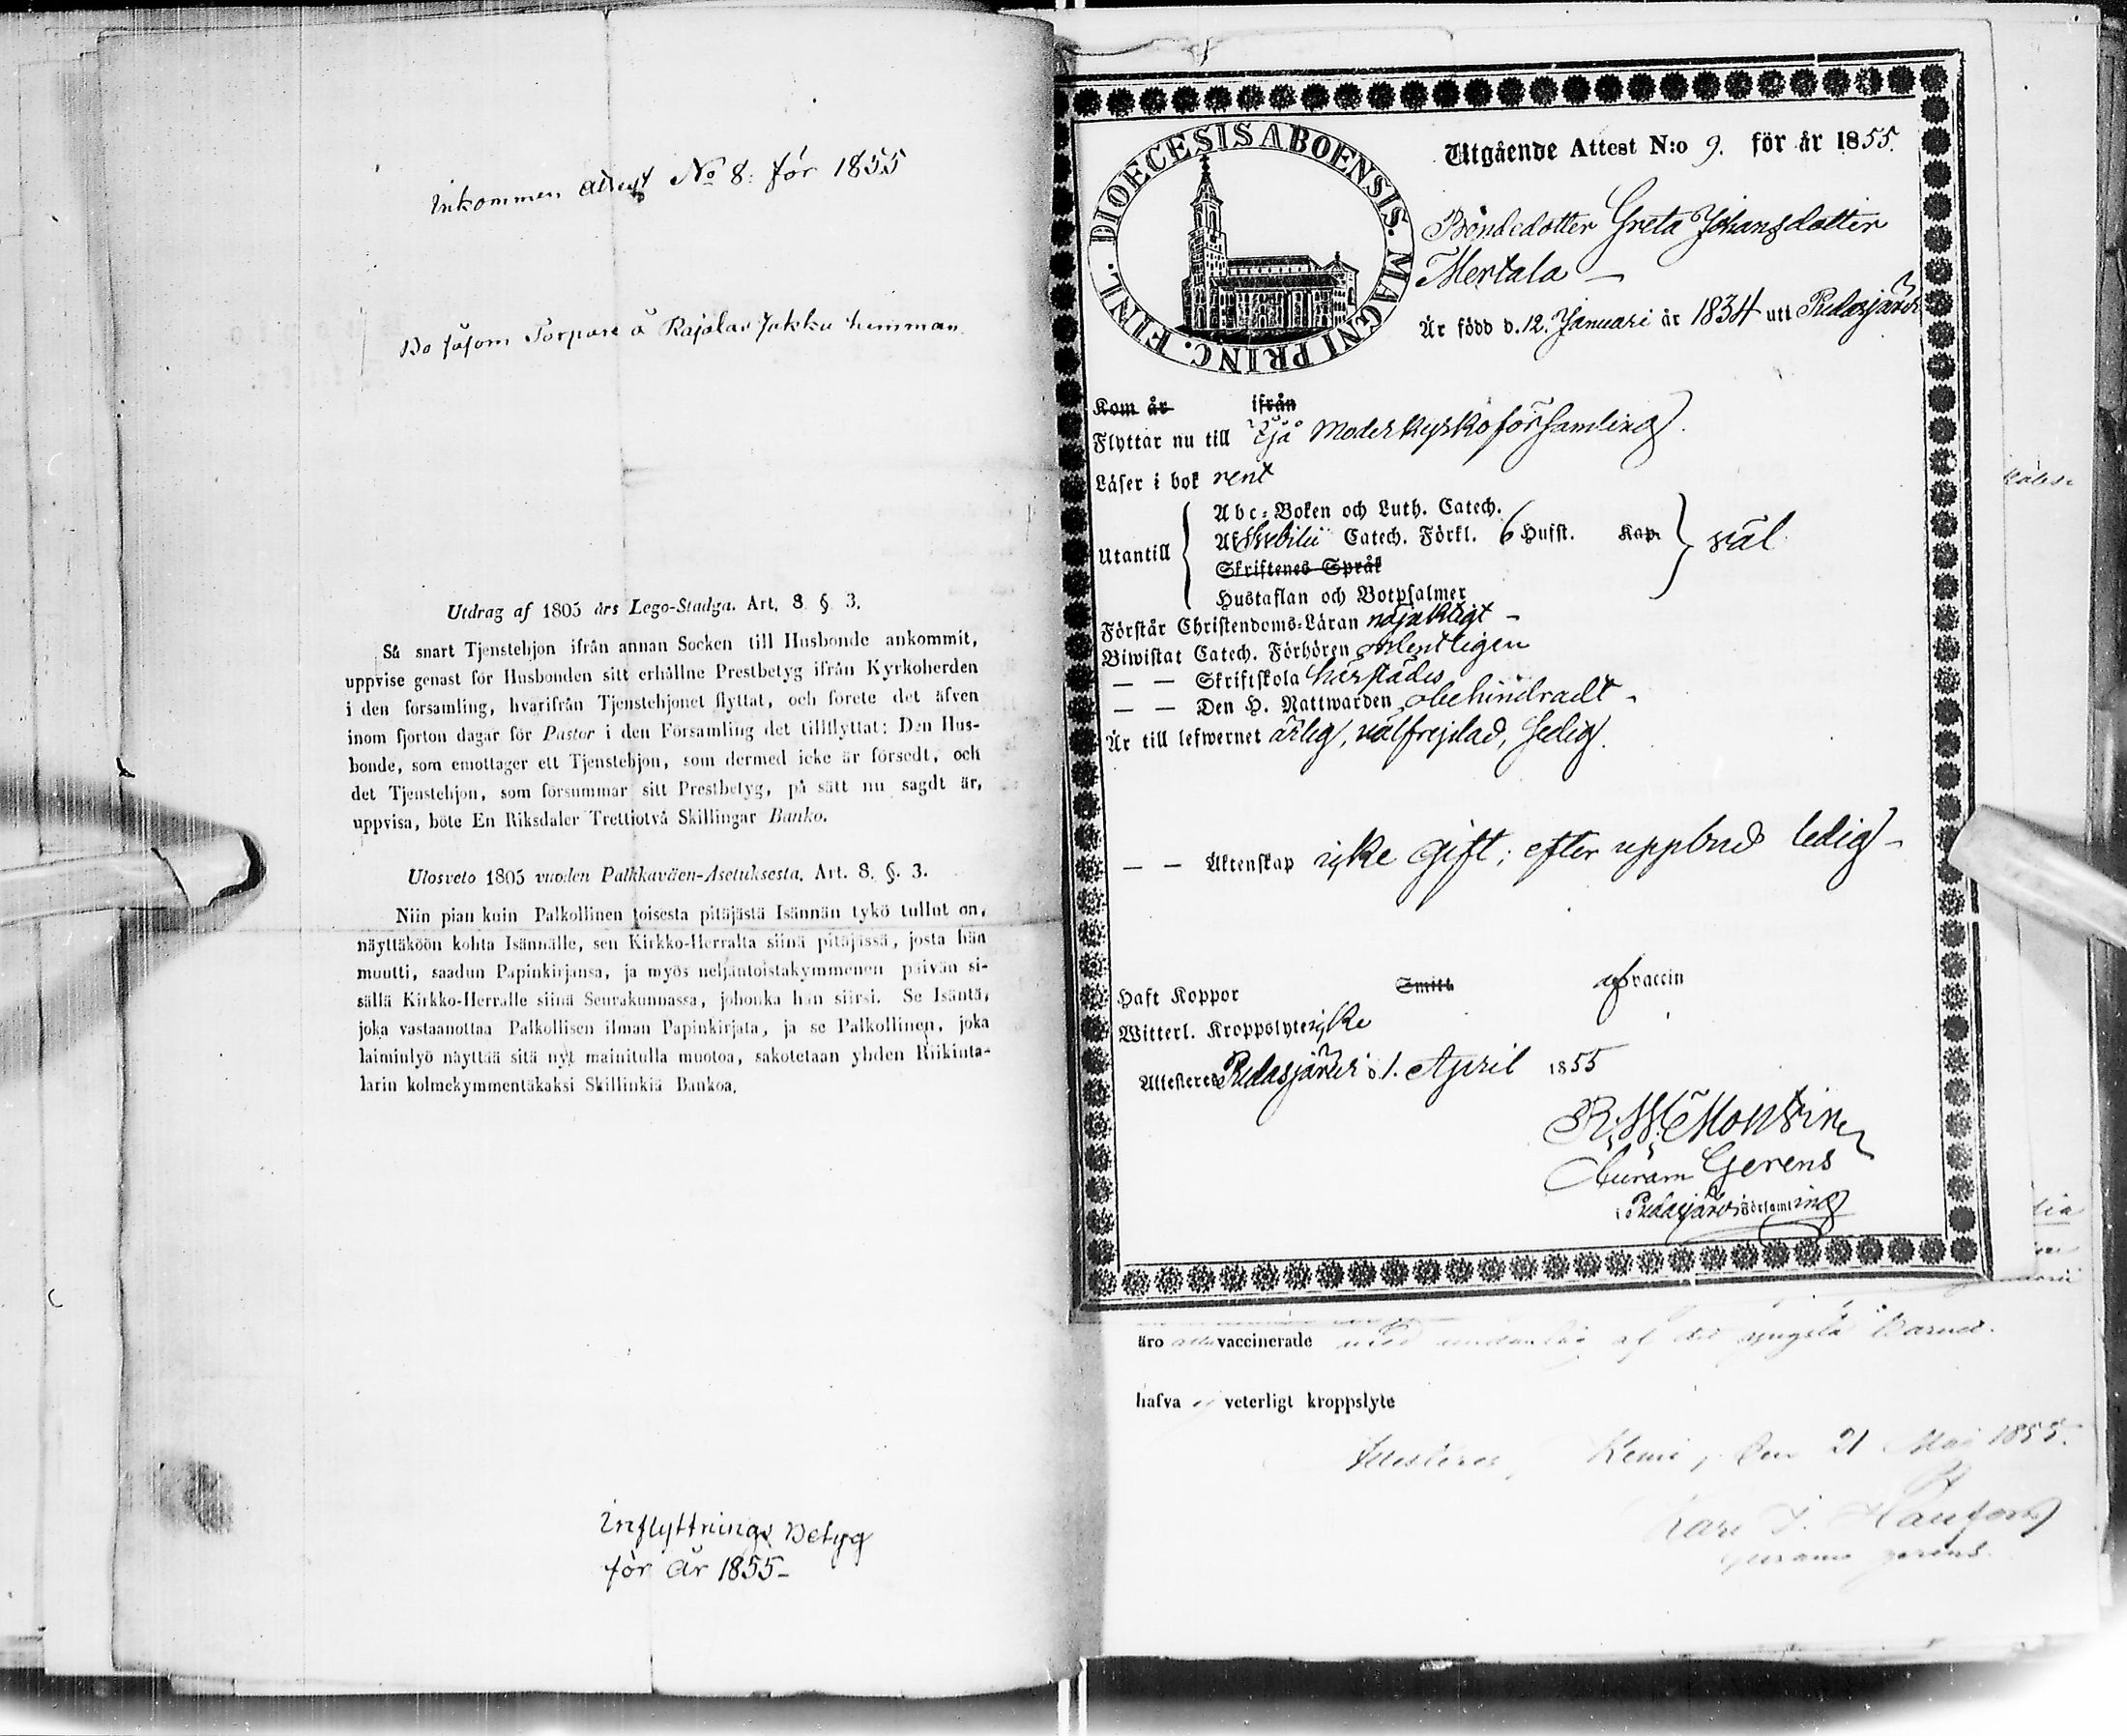 Inkommen attest No 8. för 1855
Bo såsom Torpare å Rajalas Jakku hemman.
Utdrag af 1805 års Lego-Stadga. Art. 8 § 3.
Så snart Tjenstehjon ifrån annan Socken till Husbonde ankommit,
uppvise genast för Husbonden sitt erhållne Prestbetyg ifrån Kyrkoherden
i den församling, hvarifrån Tjenstehjonet flyttat, och förete det äfven
inom fjorton dagar för Pastor i den Församling det tillflyttat: Den Hus-
bonde, som emottager ett Tjenstehjon, som dermed icke är försedt, och
det Tjenstehjon, som försummar sitt Prestbetyg, på sätt nu sagdt är,
uppvisa, böte En Riksdaler Trettiotvå Skillingar Banko.
Ulosveto 1805 vuoden Palkkaväen-Asetuksesta. Art. 8. §. 3.
Niin pian kuin Palkollinen toisesta pitäjästä Isännän tykö tullut on,
näyttäköön kohta Isännälle, sen Kirkko-Herralta siinä pitäjässä, josta hän
muutti, saadun Papinkirjansa, ja myös neljäntoistakymmenen päivän si-
sällä Kirkko-Herralle siinä Seurakunnassa, johonka hän siirsi. Se Isäntä,
joka vastaanottaa Palkollisen ilman Papinkirjata, ja se Palkollinen, joka
laiminlyö näyttää sitä nyt mainitulla muotoa, sakotetaan yhden Riikinta-
larin kolmekymmentäkaksi Skillinkiä Bankoa.
Inflyttnings Betyg
för år 1855-
DIOECESIS ABOENSIS. MAGNI PRINC. FINL.
Utgående Attest N:o 9. för år 1855.
Bondedotter Greta Johansdotter
Mertala —
Är född d. 12. Januari år 1834 uti Pudasjärvi
Kom år ifrån
Flyttar nu till Ijå Moderkyrkoförsamling.
Läser i bok rent
Utantill
Abc-Boken och Luth. Catech.
Af Svebilii Catech. Förkl. 6 Hufst. Kap.
Skriftenes Språk
Hustaflan och Botpsalmer
väl.
Förstår Christendoms-Läran nöjaktigt -
Biwistat Catech. Förhören ordentligen
— — Skriftskola härstädes
— — Den H. Nattwarden obehindradt -
Är till lefwernet ärlig, välfrejdad, sedig.
— — Äktenskap icke gift; efter uppbud ledig -
Haft Koppor Smitt. af vaccin
Witterl. Kroppslyte icke
Attesteres Pudasjärvi d. 1. April 1855
R. W. Montin
Curam Gerens
i Pudasjärvi Församling
äro alla vaccinerade med undantag af det yngsta barnet.
hafva ej veterligt kroppslyte
Attesteras, Kemi, den 21 Maj 1855.